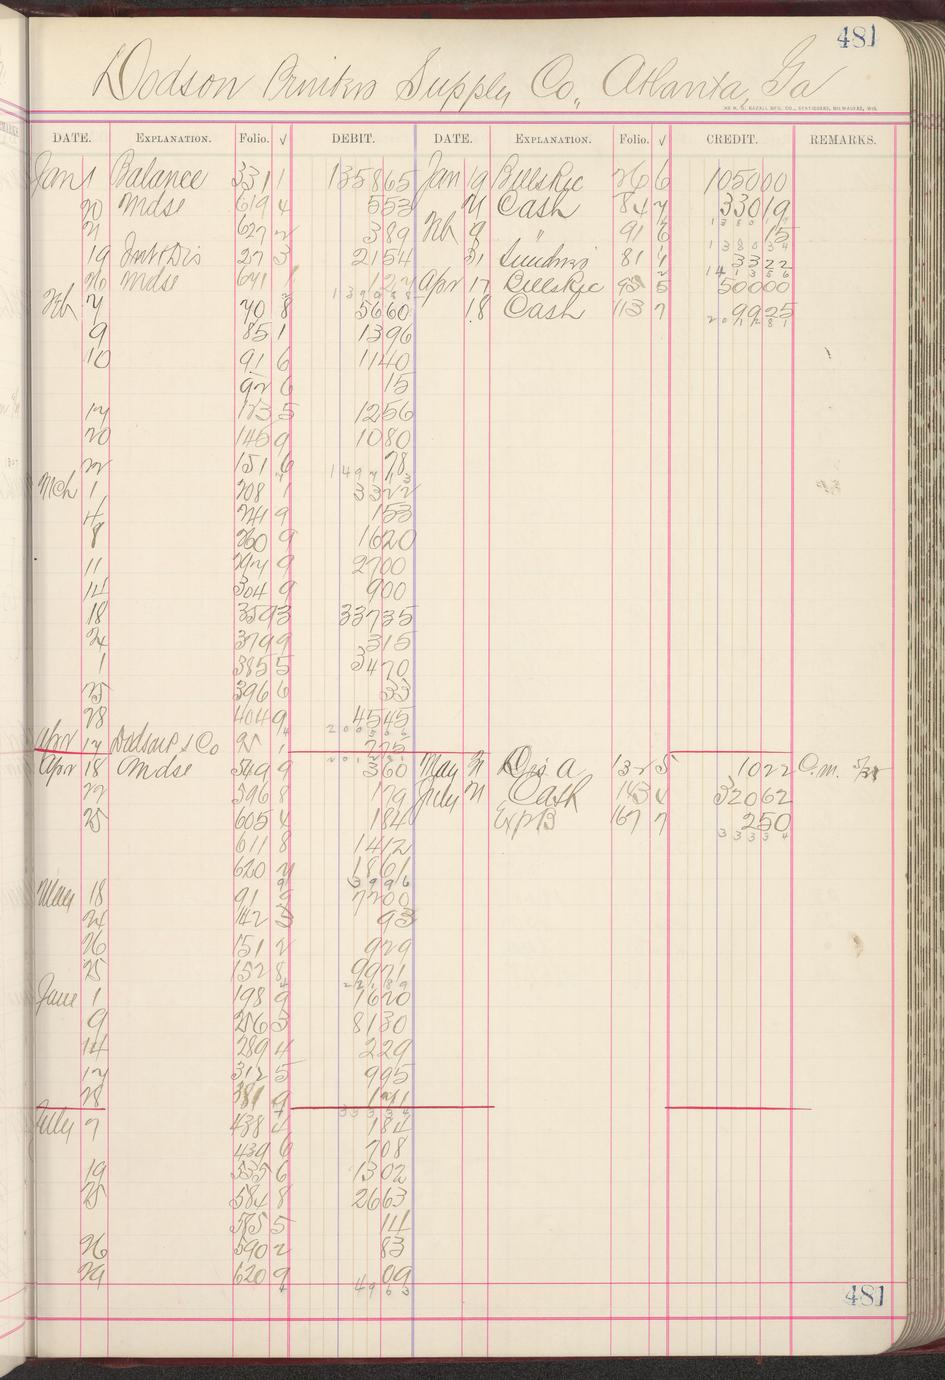 481
Dodson Printers Supply Co., Atlanta, Ga
DATE. EXPLANATION. Folio. √ DEBIT. DATE. EXPLANATION. Folio. √ CREDIT. REMARKS.
Jan 1 Balance 331 1 1358 65 Jan 19 Bills Rec 26 6 1050 00
20 Mdse 619 4 5 53 21 Cash 84 7 330 19
21 627 2 3 89 Feb 9 " 91 6 15
19 Int & Dis 27 3 21 54 31 Sundries 81 33 22
26 Mdse 641 1 1 27 Apr 17 Bills Rec 95 5 500 00
Feb 7 70 8 56 60 18 Cash 113 7 99 25
9 85 1 13 96
10 91 6 11 40
92 6 15
17 123 5 12 56
20 145 9 10 80
22 151 6 78
Mch 1 208 1 33 22
4 241 9 1 53
8 260 9 16 20
11 277 9 27 00
14 304 9 9 00
18 359 3 337 35
24 379 9 3 15
1 385 5 34 70
25 396 6 33
28 404 9 45 45
Apr 17 Dodson P S Co 95 1 2 25
Apr 18 Mdse 549 9 3 60 May 31 Dis a 132 5 10 22 C.m. 5/31
22 596 8 1 79 July 21 Cash 143 4 320 62
25 605 4 1 84 Exp B 167 7 2 50
3 3 3 3 4
611 8 14 12
620 7 18 01
3 9 9 6
May 18 91 2 72 00
24 142 3 93
26 151 2 9 29
25 152 8 99 71
2 2 1 8 9
June 1 198 9 16 20
9 256 3 81 30
14 289 4 2 29
17 312 5 9 95
28 381 9 1 71
3 3 3 3 4
July 7 438 4 1 84
439 6 7 08
19 535 6 13 02
25 584 8 26 63
585 5 14
26 590 2 83
29 620 9 09
4 9 6 3
481